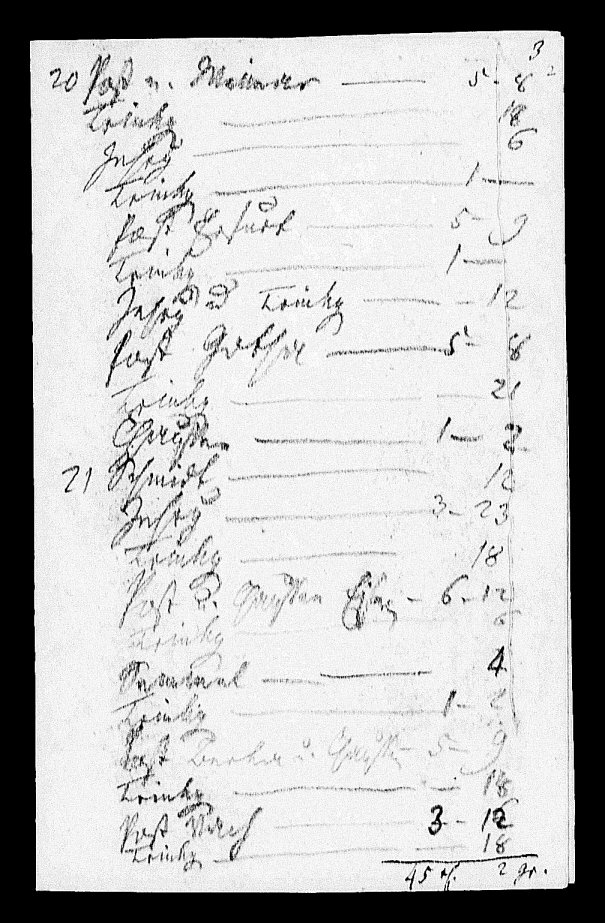 3
20 Post n. Weimar — 5 - 8
Trinkg — 18
Zehrg — 6
Trinkg — 1 —
Post Erfurt — 5 - 9
Trinkg — 1 —
Zehrg u Trinkg — 12
Post Gotha — 5 - 8
Trinkg — 21
Chaussee — 1 - 2
21 Schmidt — 12
Zehrg — 3 - 23
Trinkg — 18
Post u. Chaussee Eisen — 6 - 12
Trinkg — 6
4
Trinkg — 1 - 2
Post Berka u. Chauss — 5 - 9
Trinkg — 18
Post Vach — 3 - 12
Trinkg — 18
45 rh. 2 gr.